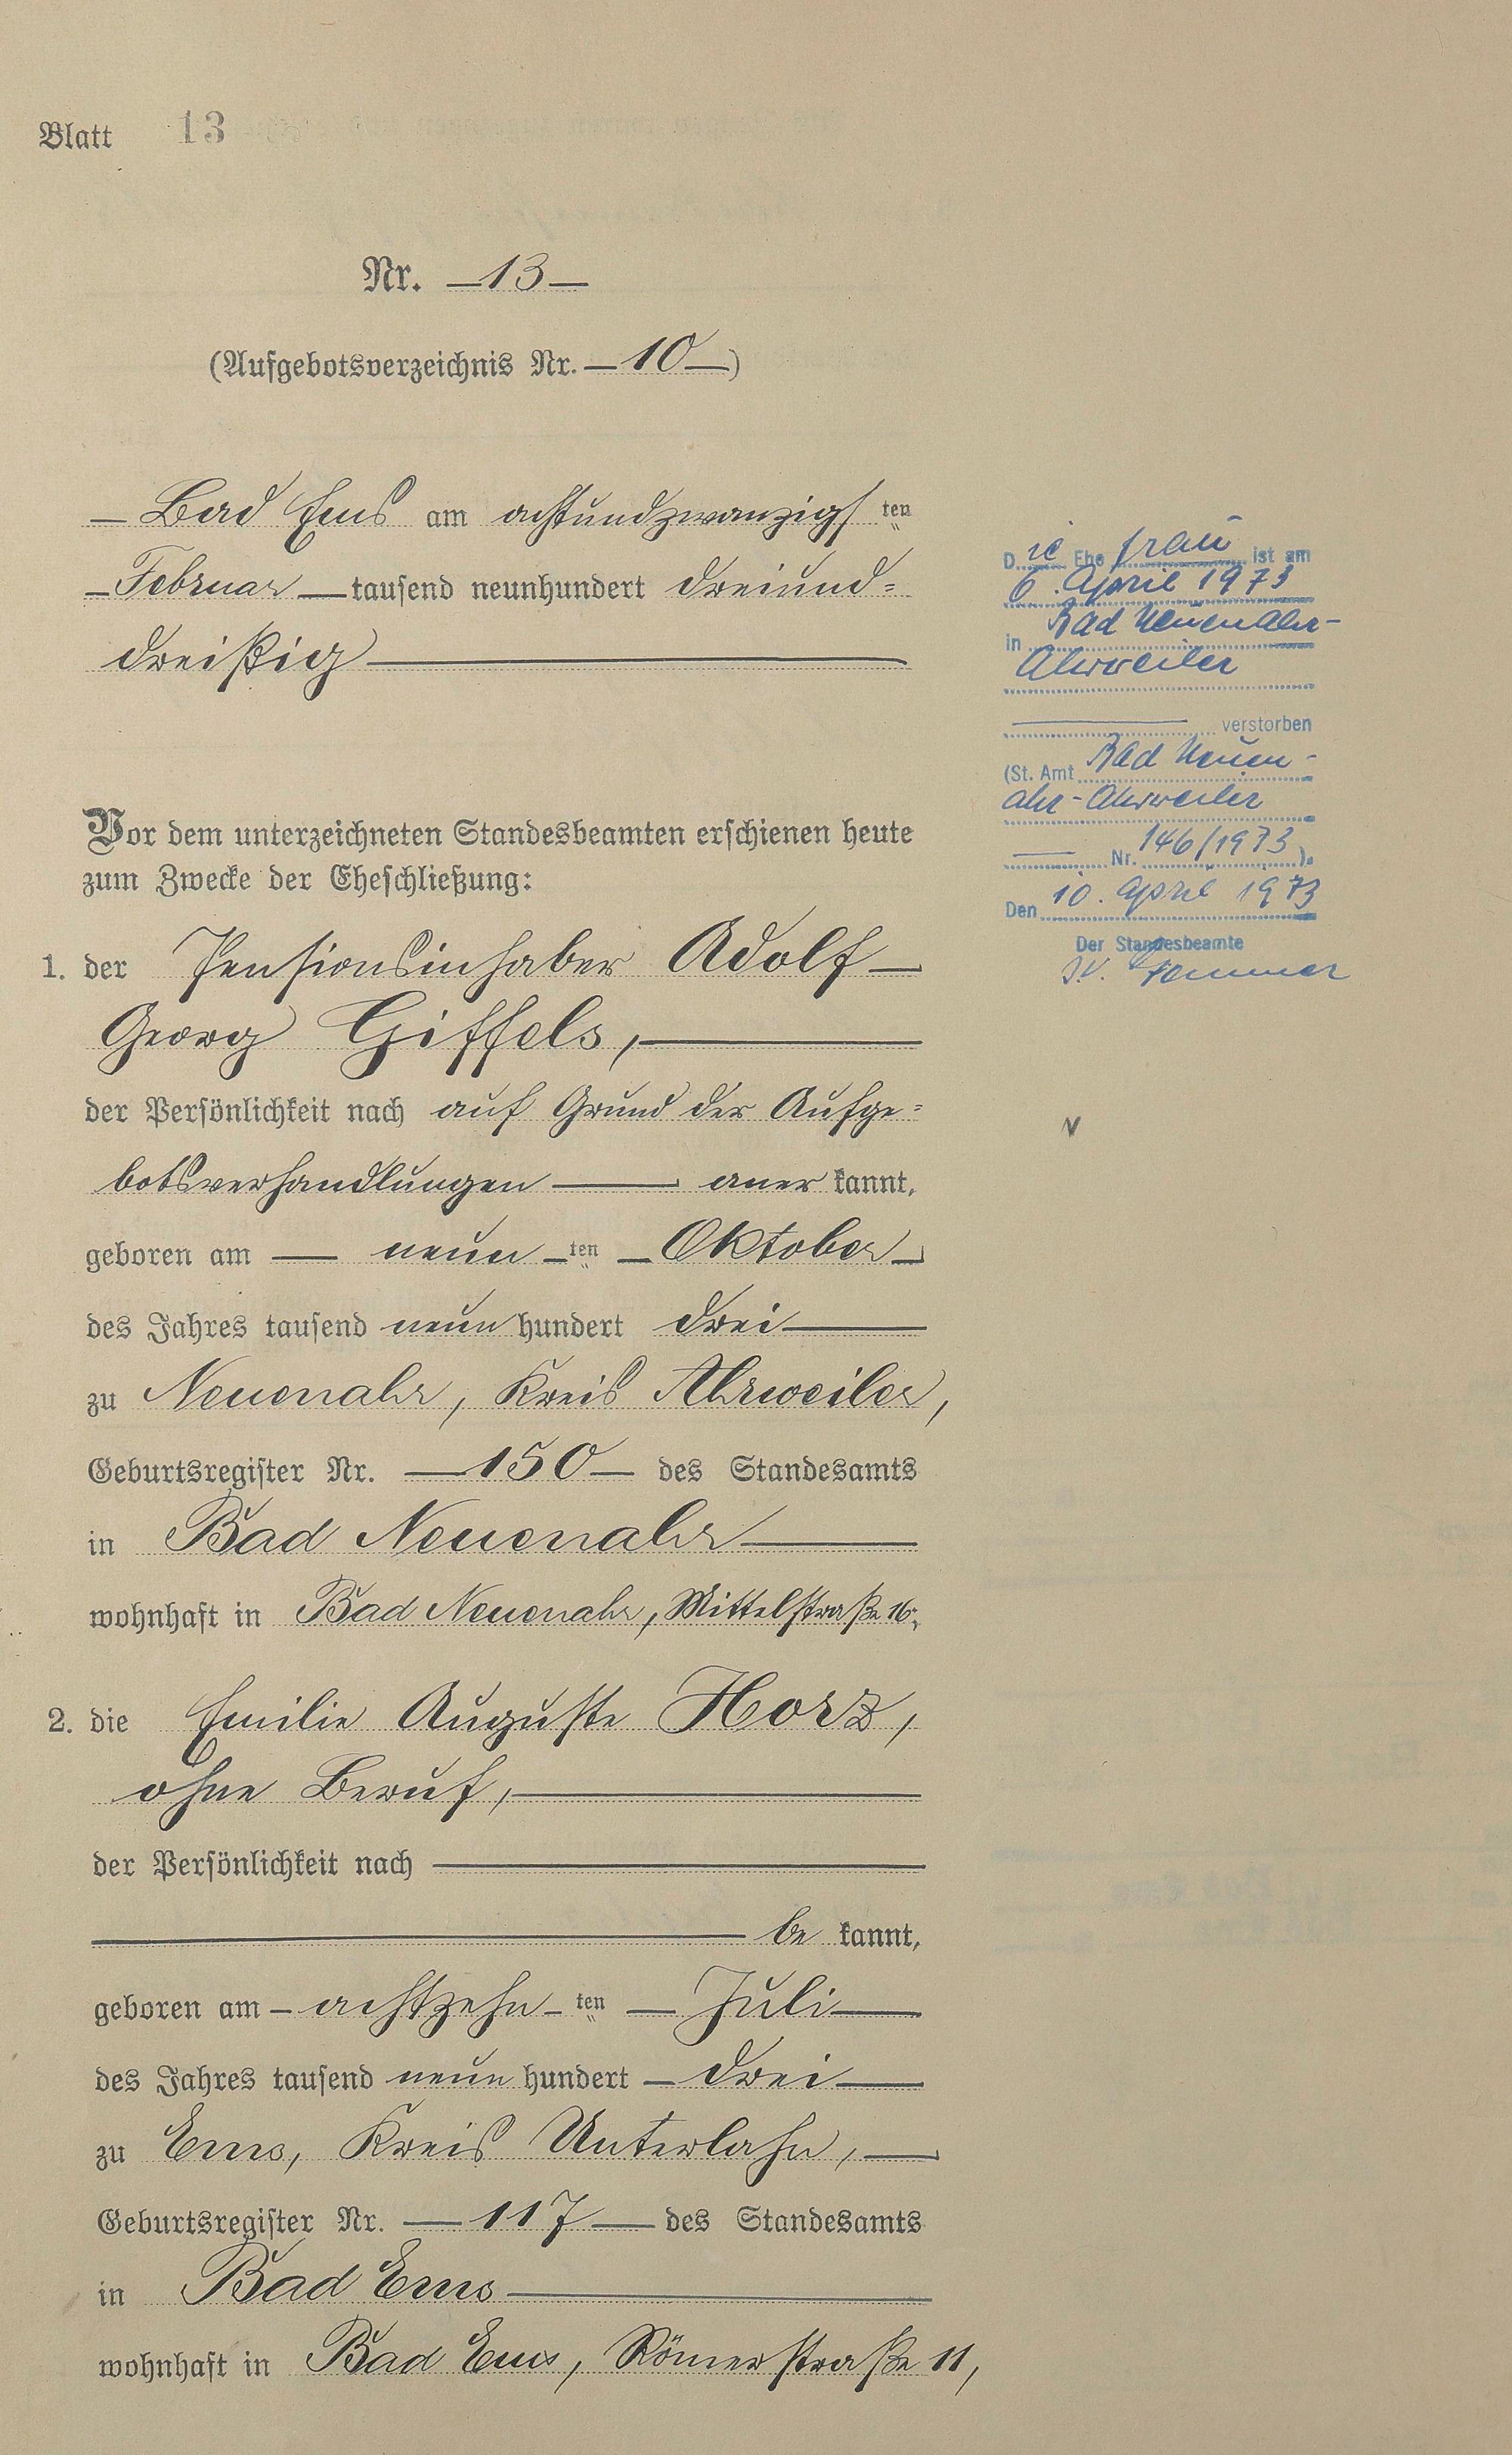 Blatt 13
Nr. 13
(Aufgebotsverzeichnis Nr. 10)
Bad Ems am achtundzwanzigsten
Februar tausend neunhundert dreiund=
dreißig
Vor dem unterzeichneten Standesbeamten erschienen heute
zum Zwecke der Eheschließung:
1. der Pensionsinhaber Adolf
Georg Giffels,
der Persönlichkeit nach auf Grund der Aufge=
botsverhandlungen anerkannt,
geboren am neunten Oktober
des Jahres tausend neunhundert drei
zu Neuenahr, Kreis Ahrweiler,
Geburtsregister Nr. 150 des Standesamts
in Bad Neuenahr
wohnhaft in Bad Neuenahr, Mittelstraße 16,
2. die Emilie Auguste Horz,
ohne Beruf,
der Persönlichkeit nach
bekannt,
geboren am achtzehnten Juli
des Jahres tausend neunhundert drei
zu Ems, Kreis Unterlahn,
Geburtsregister Nr. 117 des Standesamts
in Bad Ems
wohnhaft in Bad Ems, Römerstraße 11,
Die Ehefrau ist am
6. April 1973
in Bad Neuenahr-
Ahrweiler
verstorben
(St. Amt Bad Neuen-
ahr-Ahrweiler
Nr. 146/1973).
Den 10. April 1973
Der Standesbeamte
I.V.